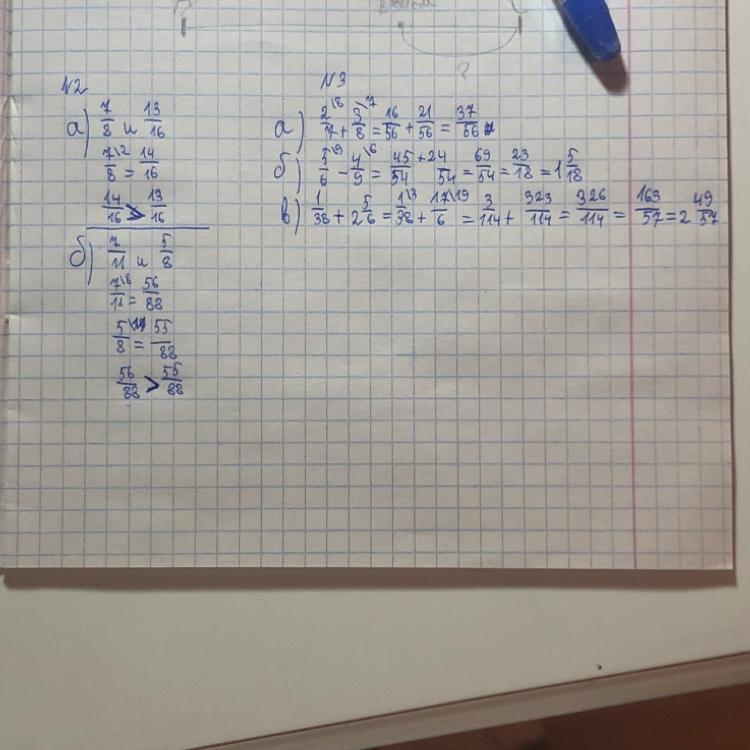 ?
N2
а) 7/8 и 13/16
7\2/8 = 14/16
14/16 > 13/16
б) 7/11 и 5/8
7\8/11 = 56/88
5\11/8 = 55/88
56/88 > 55/88
N3
а) 2\8/7 + 3\7/8 = 16/56 + 21/56 = 37/56
б) 5\9/6 - 4\6/9 = 45/54 + 24/54 = 69/54 = 23/18 = 1 5/18
в) 1/38 + 2 5/6 = 1\3/38 + 17\19/6 = 3/114 + 323/114 = 326/114 = 163/57 = 2 49/57